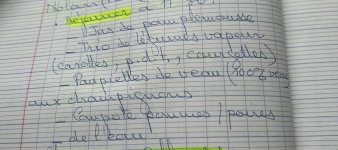 • Déjeuner à 11h30:
- Jus de pamplemousse
- Trio de légumes vapeur
(carottes, p.d.t., courgettes)
- Paupiettes de veau (100% veau)
aux champignons
- Compote pommes/poires
- de l'eau